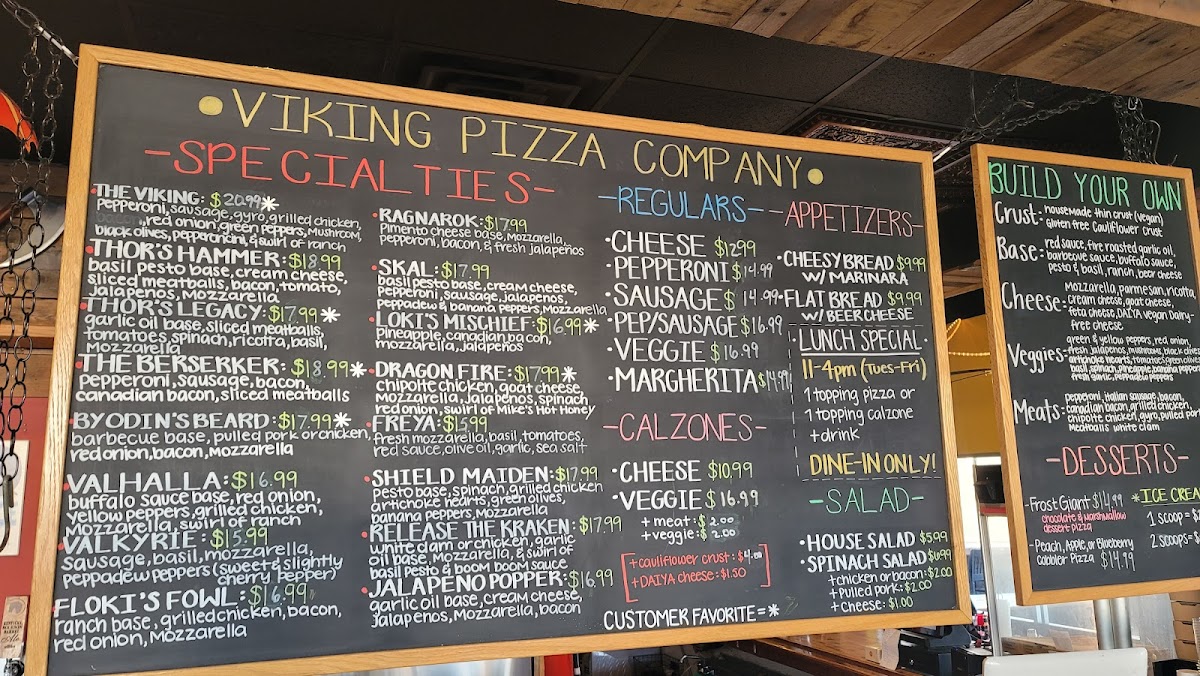 •VIKING PIZZA COMPANY•
-SPECIALTIES-
•THE VIKING: $20.99*
pepperoni, sausage, gyro, grilled chicken,
red onion, green peppers, mushroom,
black olives, pepperoncini, & swirl of ranch
•THOR'S HAMMER: $18.99
basil pesto base, cream cheese,
sliced meatballs, bacon, tomato,
jalapeños, mozzarella
•THOR'S LEGACY: $17.99*
garlic oil base, sliced meatballs,
tomatoes, spinach, ricotta, basil,
mozzarella
•THE BERSERKER: $18.99*
pepperoni, sausage, bacon,
canadian bacon, sliced meatballs
BY ODIN'S BEARD: $17.99*
barbecue base, pulled pork or chicken,
red onion, bacon, mozzarella
VALHALLA: $16.99
buffalo sauce base, red onion,
yellow peppers, grilled chicken,
mozzarella, swirl of ranch
VALKYRIE: $15.99
sausage, basil, mozzarella,
peppadew peppers (sweet & slightly
cherry pepper)
FLOKI'S FOWL: $16.99
ranch base, grilled chicken, bacon,
red onion, mozzarella
•RAGNAROK: $17.99
Pimento cheese base, mozzarella,
pepperoni, bacon, & fresh jalapeños
•SKAL: $17.99
basil pesto base, cream cheese,
pepperoni, sausage, jalapenos,
peppadew & banana peppers, mozzarella
•LOKI'S MISCHIEF: $16.99*
pineapple, canadian bacon,
mozzarella, jalapeños
•DRAGON FIRE: $17.99*
chipotle chicken, goat cheese,
mozzarella, jalapeños, spinach
red onion, swirl of Mike's Hot Honey
•FREYA: $15.99
fresh mozzarella, basil, tomatoes,
red sauce, olive oil, garlic, sea salt
•SHIELD MAIDEN: $17.99
pesto base, spinach, grilled chicken
artichoke hearts, green olives,
banana peppers, mozzarella
•RELEASE THE KRAKEN: $17.99
white clam or chicken, garlic
oil base, mozzarella, & swirl of
basil pesto & boom boom sauce
•JALAPEÑO POPPER: $16.99
garlic oil base, cream cheese,
jalapenos, mozzarella, bacon
-REGULARS-
•CHEESE $12.99
•PEPPERONI $14.99
•SAUSAGE $14.99
•PEP/SAUSAGE $16.99
•VEGGIE $16.99
•MARGHERITA $14.99
-CALZONES-
•CHEESE $10.99
•VEGGIE $16.99
+meat: $2.00
+veggie: $2.00
+cauliflower crust: $4.00
+DAIYA cheese: $1.50
CUSTOMER FAVORITE = *
-APPETIZERS-
•CHEESY BREAD $9.99
W/ MARINARA
•FLAT BREAD $9.99
W/ BEER CHEESE
•LUNCH SPECIAL•
11-4pm (Tues-Fri)
1 topping pizza or
1 topping calzone
+drink
DINE-IN ONLY!
-SALAD-
•HOUSE SALAD $5.99
•SPINACH SALAD
+chicken or bacon: $2.00
+Pulled pork: $2.00
+Cheese: $1.00
BUILD YOUR OWN
Crust: housemade thin crust (vegan)
Gluten free Cauliflower crust
Base: red sauce, fire roasted garlic oil,
barbecue sauce, buffalo sauce,
pesto & basil, ranch, beer cheese
Cheese: Mozzarella, parmesan, ricotta,
cream cheese, goat cheese,
feta cheese, DAIYA vegan Dairy-
free cheese
Veggies: green & yellow peppers, red onion,
fresh jalapenos, mushrooms, black olives
artichoke hearts, tomatoes, green olives
basil, spinach, pineapple, banana peppers
fresh garlic, peppadew peppers
Meats: pepperoni, italian sausage, bacon,
canadian bacon, grilled chicken,
chipotle chicken, gyro, pulled pork
meatballs white clam
-DESSERTS-
-Frost Giant $14.99
chocolate & marshmallow
dessert pizza
-Peach, Apple, or Blueberry
Cobbler Pizza $14.99
*ICE CREA
1 scoop = $
2 scoops = $